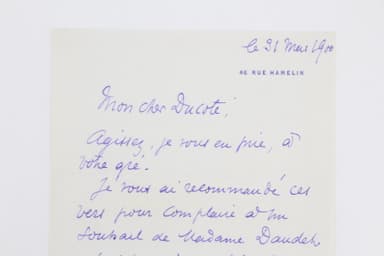 le 31 Mars 1900
46 RUE HAMELIN
Mon cher Ducoté,
Agissez, je vous en prie, à
votre gré.
Je vous ai recommandé ces
vers pour complaire à un
souhait de Madame Daudet,